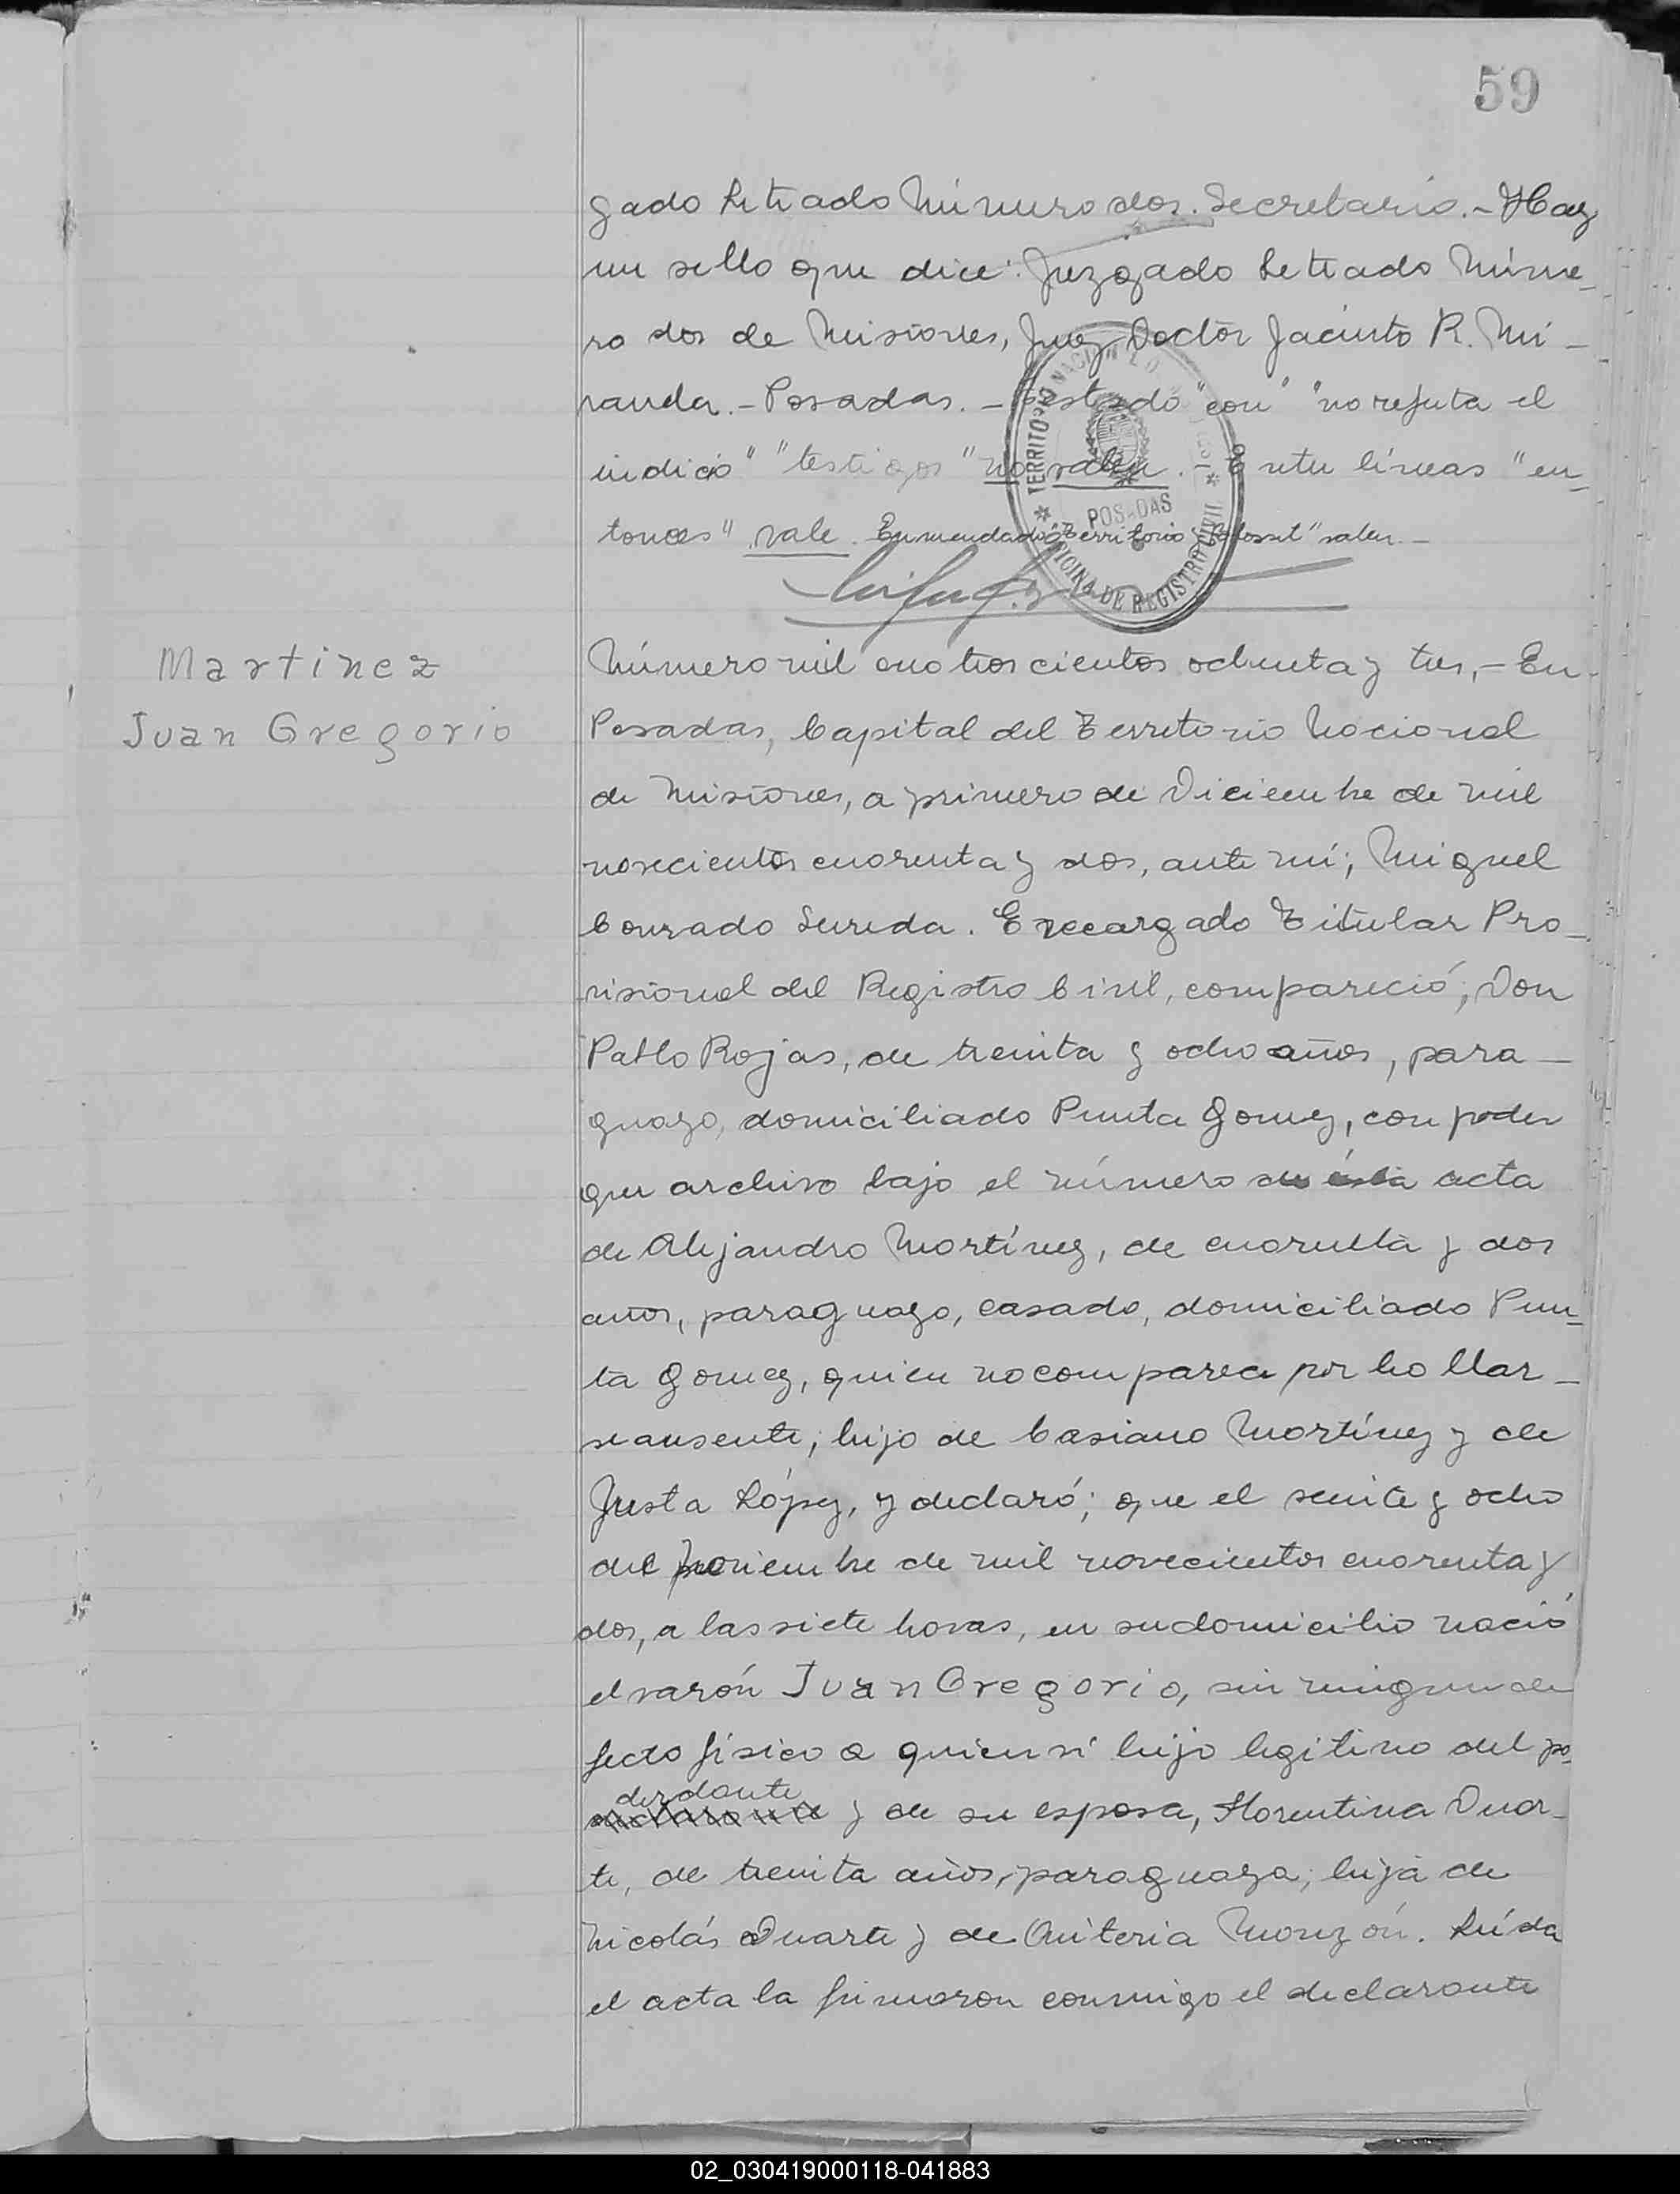 59
gado Letrado Número dos. Secretario.- Hay
un sello que dice: Juzgado Letrado Núme-
ro dos de Misiones, Juez Doctor Jacinto R. Mi-
randa.- Posadas.- Testado "con" "no refuta el
indicio" "testigos" no valen.- Entre líneas "en-
tonces" vale. Enmendado "Territorio" valen.-
TERRITORIO NACIONAL
POSADAS
OFICINA DE REGISTRO CIVIL
Martinez
Juan Gregorio
Número mil cuatrocientos ochenta y tres,- En
Posadas, Capital del Territorio Nacional
de Misiones, a primero de Diciembre de mil
novecientos cuarenta y dos, ante mí; Miguel
Conrado Sureda. Encargado Titular Pro-
visional del Registro Civil, compareció; Don
Pablo Rojas, de treinta y ocho años, para-
guayo, domiciliado Punta Gomez, con poder
que archivo bajo el número de ésta acta
de Alejandro Martínez, de cuarenta y dos
años, paraguayo, casado, domiciliado Pun-
ta Gomez, quien no comparece por hallar-
se ausente; hijo de Casiano Martínez y de
Justa López, y declaró; que el veinte y ocho
del Noviembre de mil novecientos cuarenta y
dos, a las siete horas, en su domicilio nació
el varón Juan Gregorio, sin ningun de
fecto físico a quien vi hijo legitimo del po-
derdante
declarante y de su esposa, Florentina Duar-
te, de treinta años, paraguaya; hija de
Nicolás Duarte y de Quiteria Monzón. Leída
el acta la firmaron conmigo el declarante
02_030419000118-041883